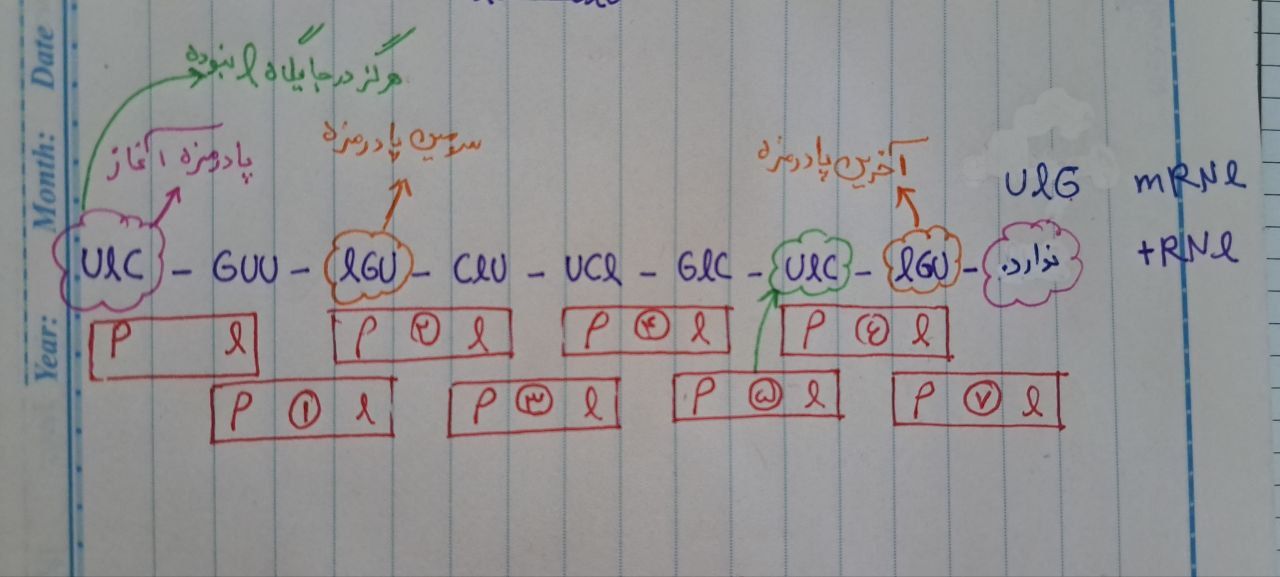 Year: Month: Date
هرگز در جایگاه A نبوده
پادرمزه آغاز
سومین پادرمزه
آخرین پادرمزه
UAG mRNA
UAC - GUU - AGU - CAU - UCA - GAC - UAC - AGU - ندارد. tRNA
P A
P ۲ A
P ۴ A
P ۶ A
P ۱ A
P ۳ A
P ۵ A
P ۷ A